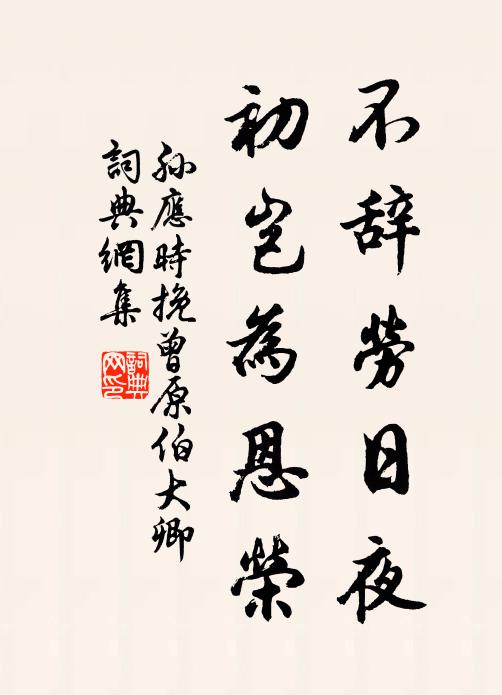 不辞勞日夜
初豈為恩榮
孫應時挽曾原伯大卿
詞典網集
詞典
网印